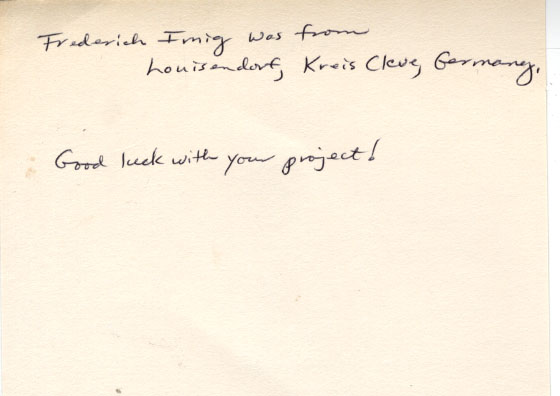 Frederich Imig was from
Louisendorf, Kreis Cleve, Germany.
Good luck with your project!